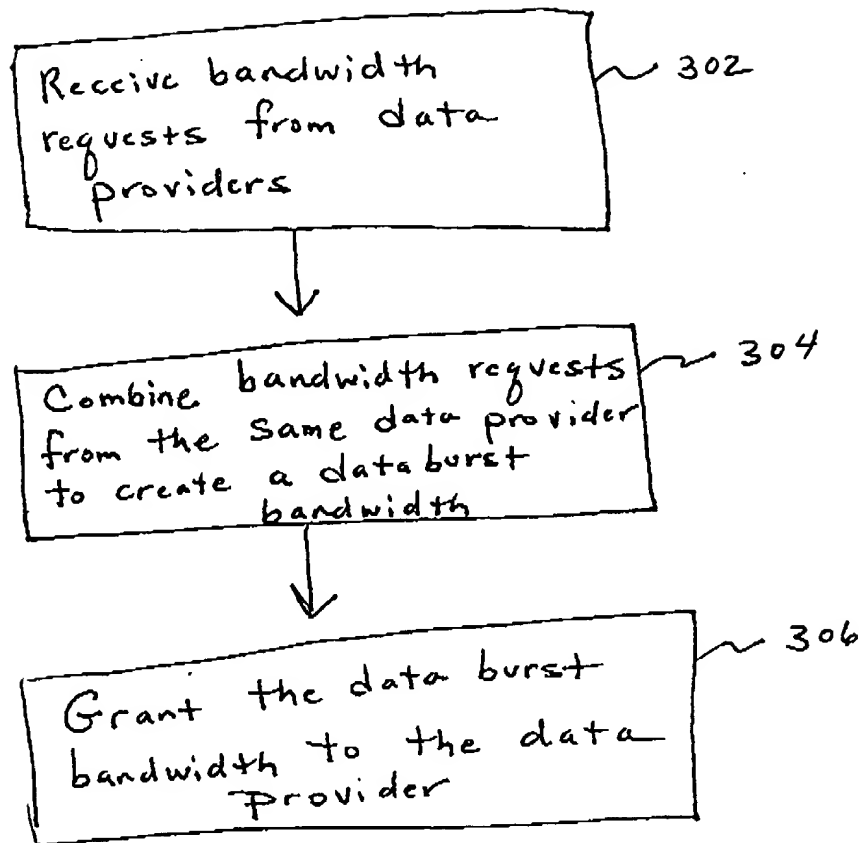 Receive bandwidth
requests from data
providers
302
Combine bandwidth requests
from the same data provider
to create a data burst
bandwidth
304
Grant the data burst
bandwidth to the data
provider
306